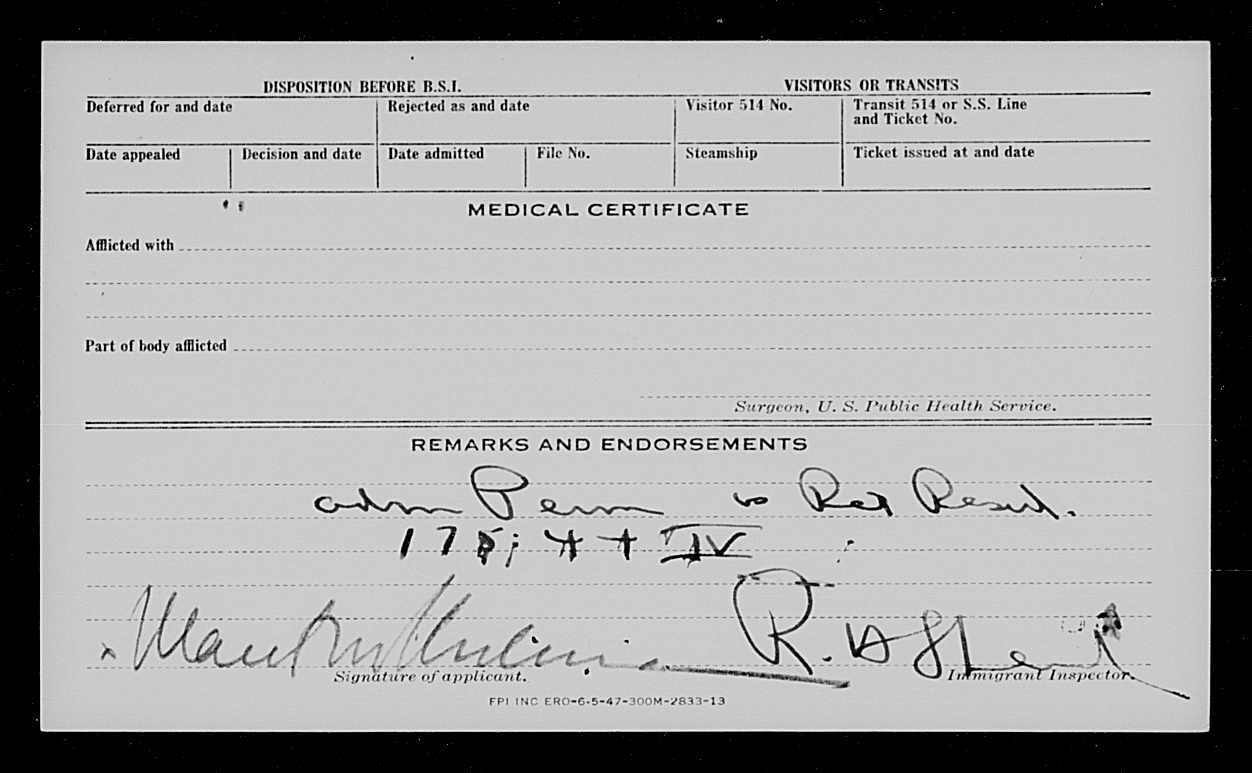 DISPOSITION BEFORE B.S.I. VISITORS OR TRANSITS
Deferred for and date Rejected as and date Visitor 514 No. Transit 514 or S.S. Line and Ticket No.
Date appealed Decision and date Date admitted File No. Steamship Ticket issued at and date
MEDICAL CERTIFICATE
Afflicted with
Part of body afflicted
Surgeon, U. S. Public Health Service.
REMARKS AND ENDORSEMENTS
adm Perm as Ret Resid.
IV
R.
Signature of applicant. Immigrant Inspector.
FPI INC ERO-6-5-47-300M-2833-13